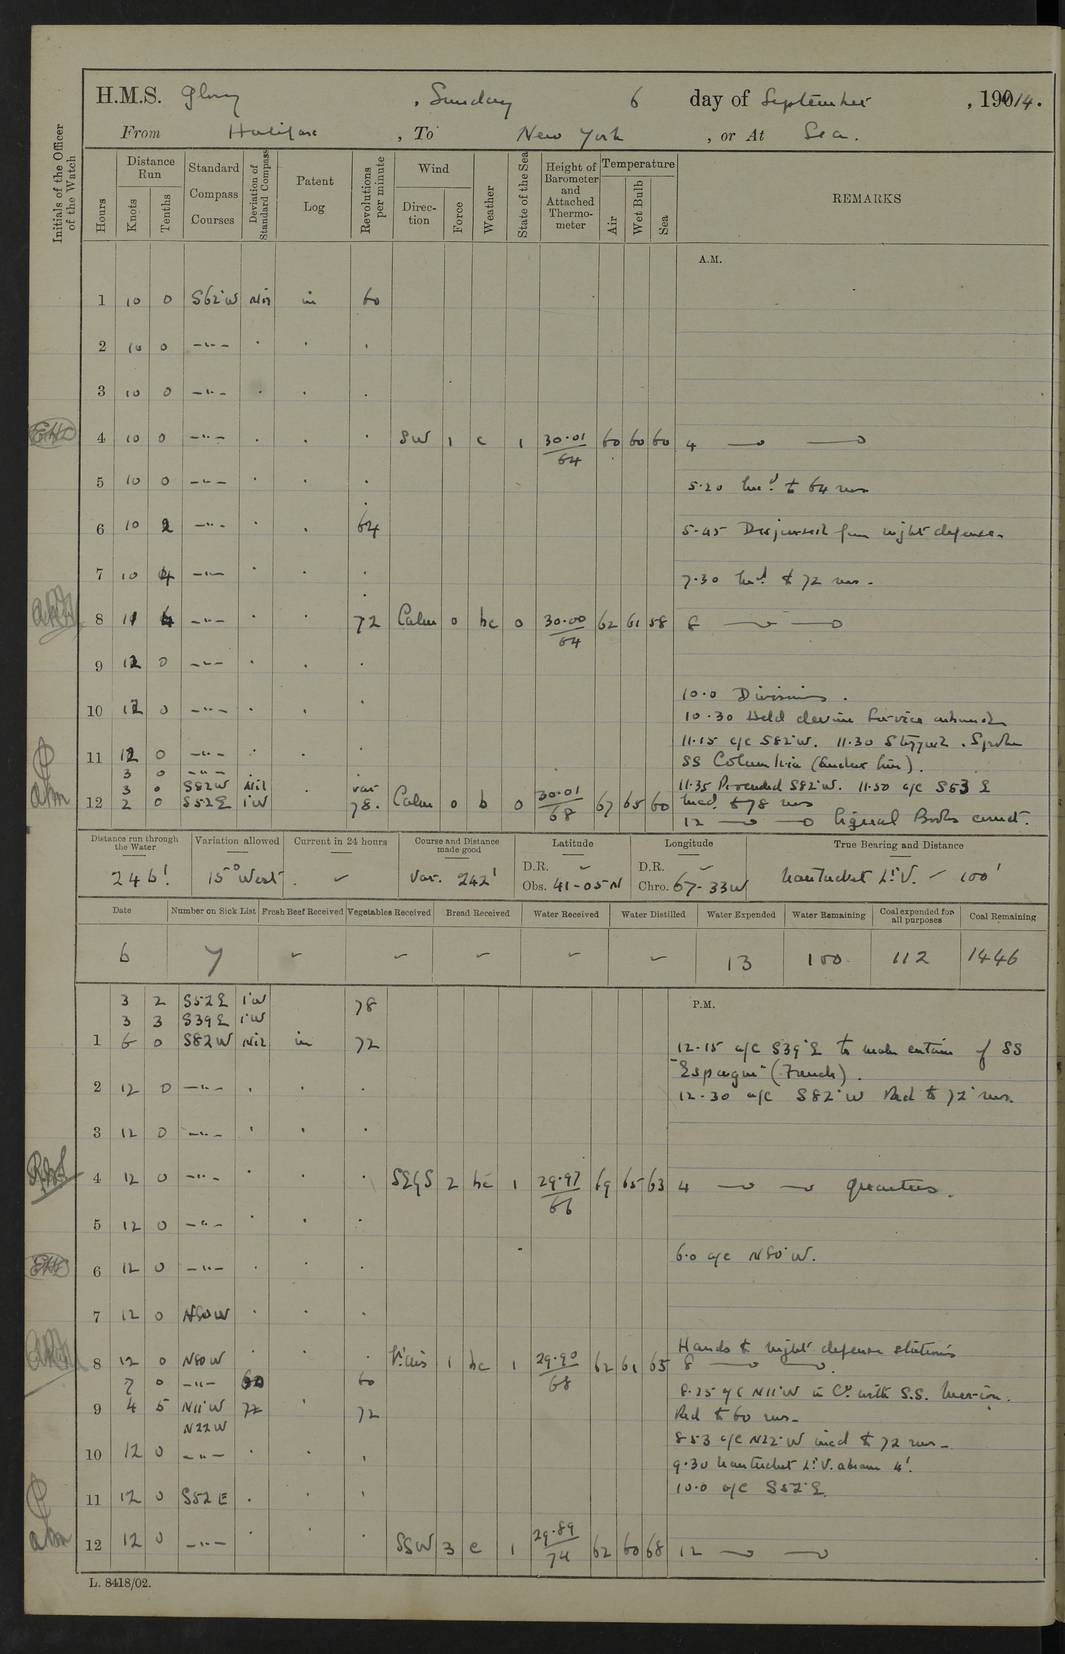 H.M.S. Glory , Sunday 6 day of September , 1914.
From Halifax , To New York , or At Sea.
Initials of the Officer of the Watch
Hours
Distance Run
Knots
Tenths
Standard Compass Courses
Deviation of Standard Compass
Patent Log
Revolutions per minute
Wind
Direction
Force
Weather
State of the Sea
Height of Barometer and Attached Thermometer
Temperature
Air
Wet Bulb
Sea
REMARKS
A.M.
1 10 0 S62°W Nil in 60
2 10 0 —"— . . .
3 10 0 —"— . . .
4 10 0 —"— . . . SW 1 c 1 30.01/64 60 60 60 4
5 10 0 —"— . . .
5.20 Incd to 64 revs
6 10 2 —"— . . 64
5.45 Dispersed from night defence.
7 10 4 —"— . . .
7.30 Incd to 72 revs.
8 11 4 —"— . . 72 Calm 0 bc 0 30.00/64 62 61 58 8
9 12 0 —"— . . .
10.0 Divisions.
10 12 0 —"— . . .
10.30 Held divine Service
11.15 a/c S82°W. 11.30 Stopped. Spoke
11 12 0 —"— . . .
SS Columbia (Anchor line).
3 0 —"—
3 0 S82W Nil var
11.35 Proceeded S82°W. 11.50 a/c S53 E
12 2 0 S52E 1°W . 78. Calm 0 b 0 30.01/68 67 65 60
Incd to 78 revs
12 Signal Books correct.
Distance run through the Water
Variation allowed
Current in 24 hours
Course and Distance made good
Latitude
Longitude
True Bearing and Distance
D.R. ~ D.R. ~
246'. 15° West. ~ Var. 242' Obs. 41-05 N Chro. 67-33 W Nantucket Lt V. — 100'
Date
Number on Sick List
Fresh Beef Received
Vegetables Received
Bread Received
Water Received
Water Distilled
Water Expended
Water Remaining
Coal expended for all purposes
Coal Remaining
6 7 ~ ~ ~ ~ ~ 13 100 112 1446
P.M.
3 2 S52E 1°W 78
3 3 S39E 1°W
1 6 0 S82W Nil in 72
12.15 a/c S39°E to make certain of SS
"Espagne" (French).
2 12 0 —"— . . .
12.30 a/c S82°W Red to 72 revs.
3 12 0 —"— . . .
4 12 0 —"— . . . SE&S 2 bc 1 29.97/66 69 65 63 4 Quarters.
5 12 0 —"— . . .
6.0 a/c N80°W.
6 12 0 —"— . . .
7 12 0 N80W . . .
Hands to night defence stations
8 12 0 N80W . . . 1 bc 1 29.90/68 62 61 65 8
7 0 —"— 60 60
8.25 a/c N11°W in Co. with S.S. Merion.
9 4 5 N11°W 72 . 72
Red to 60 revs.
N22W
8.53 a/c N22°W incd to 72 revs.
10 12 0 —"— . . .
9.30 Nantucket Lt. V. abeam 4'.
10.0 a/c S52°E
11 12 0 S52E . . .
12 12 0 —"— . . . SSW 3 c 1 29.89/74 62 60 68 12
L. 8418/02.